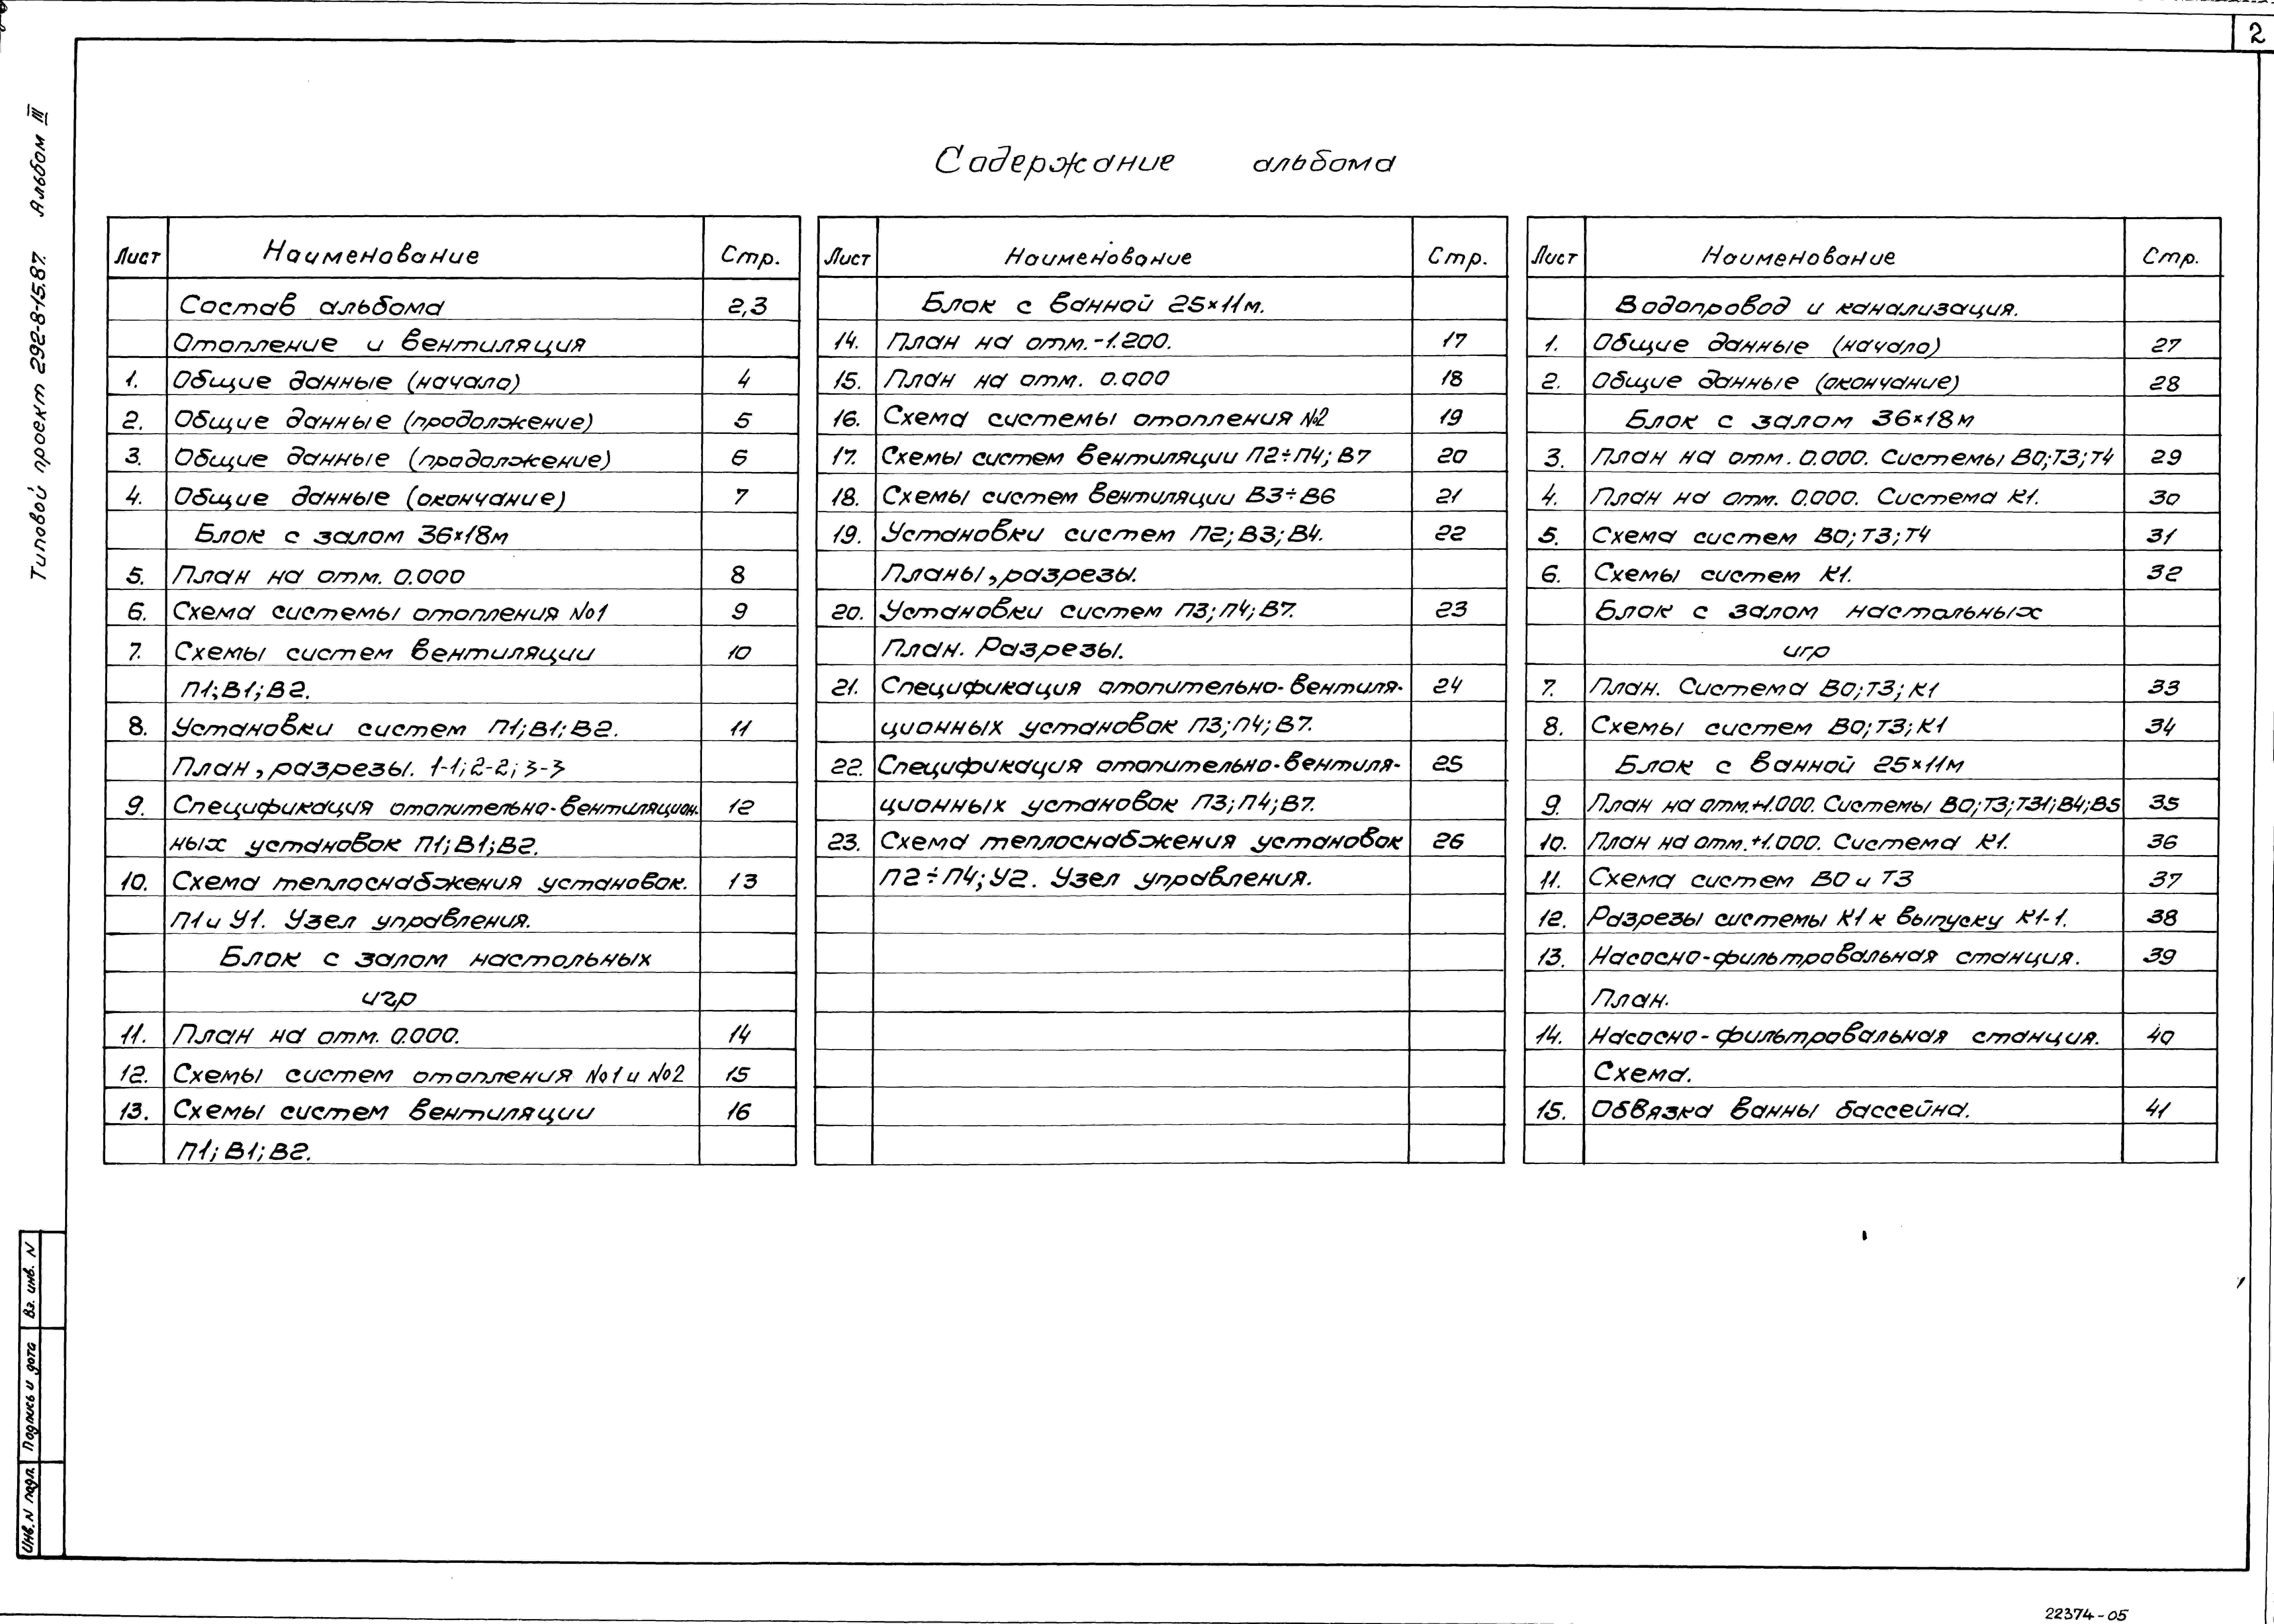 2
Типовой проект 292-8-15.87. Альбом III
Содержание альбома
Лист Наименование Стр.
Состав альбома 2,3
Отопление и вентиляция
1. Общие данные (начало) 4
2. Общие данные (продолжение) 5
3. Общие данные (продолжение) 6
4. Общие данные (окончание) 7
Блок с залом 36×18м
5. План на отм. 0.000 8
6. Схема системы отопления №1 9
7. Схемы систем вентиляции 10
П1; В1; В2.
8. Установки систем П1; В1; В2. 11
План, разрезы. 1-1; 2-2; 3-3
9. Спецификация отопительно-вентиляцион. 12
ных установок П1; В1; В2.
10. Схема теплоснабжения установок. 13
П1 и У1. Узел управления.
Блок с залом настольных
игр
11. План на отм. 0.000. 14
12. Схемы систем отопления №1 и №2 15
13. Схемы систем вентиляции 16
П1; В1; В2.
Лист Наименование Стр.
Блок с ванной 25×11м.
14. План на отм. -1.200. 17
15. План на отм. 0.000 18
16. Схема системы отопления №2 19
17. Схемы систем вентиляции П2÷П4; В7 20
18. Схемы систем вентиляции В3÷В6 21
19. Установки систем П2; В3; В4. 22
Планы, разрезы.
20. Установки систем П3; П4; В7. 23
План. Разрезы.
21. Спецификация отопительно-вентиля- 24
ционных установок П3; П4; В7.
22. Спецификация отопительно-вентиля- 25
ционных установок П3; П4; В7.
23. Схема теплоснабжения установок 26
П2÷П4; У2. Узел управления.
Лист Наименование Стр.
Водопровод и канализация.
1. Общие данные (начало) 27
2. Общие данные (окончание) 28
Блок с залом 36×18м
3. План на отм. 0.000. Системы В0; Т3; Т4 29
4. План на отм. 0.000. Система К1. 30
5. Схема систем В0; Т3; Т4 31
6. Схемы систем К1. 32
Блок с залом настольных
игр
7. План. Система В0; Т3; К1 33
8. Схемы систем В0; Т3; К1 34
Блок с ванной 25×11м
9. План на отм. +1.000. Системы В0; Т3; Т31; В4; В5 35
10. План на отм. +1.000. Система К1. 36
11. Схема систем В0 и Т3 37
12. Разрезы системы К1 к выпуску К1-1. 38
13. Насосно-фильтровальная станция. 39
План.
14. Насосно-фильтровальная станция. 40
Схема.
15. Обвязка ванны бассейна. 41
Инв. N подл. Подпись и дата Вз. инв. N
22374-05